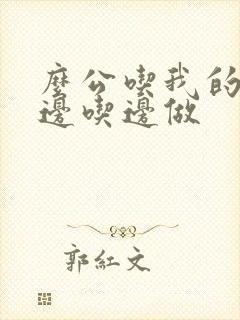 麼公喫我的
邊喫邊做
郭紅文